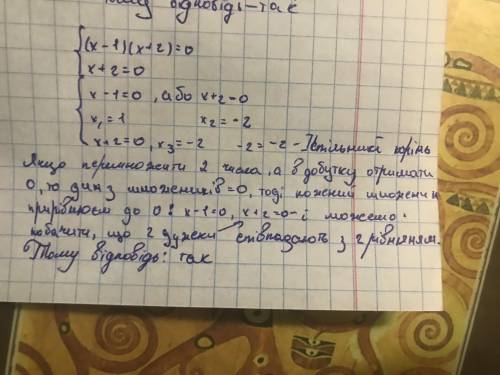 Тому відповідь – так
(x-1)(x+2)=0
x+2=0
x-1=0, або x+2=0
x₁=1 x₂=-2
x+2=0, x₃=-2 -2=-2 - Спільний корінь
Якщо перемножити 2 числа, а в добутку отримати
0, то один з множників=0, тоді кожний множник
прирівнюєм до 0: x-1=0, x+2=0 - і можемо
побачити, що 2 дужки співпадають з 2 рівнянням.
Тому відповідь: так